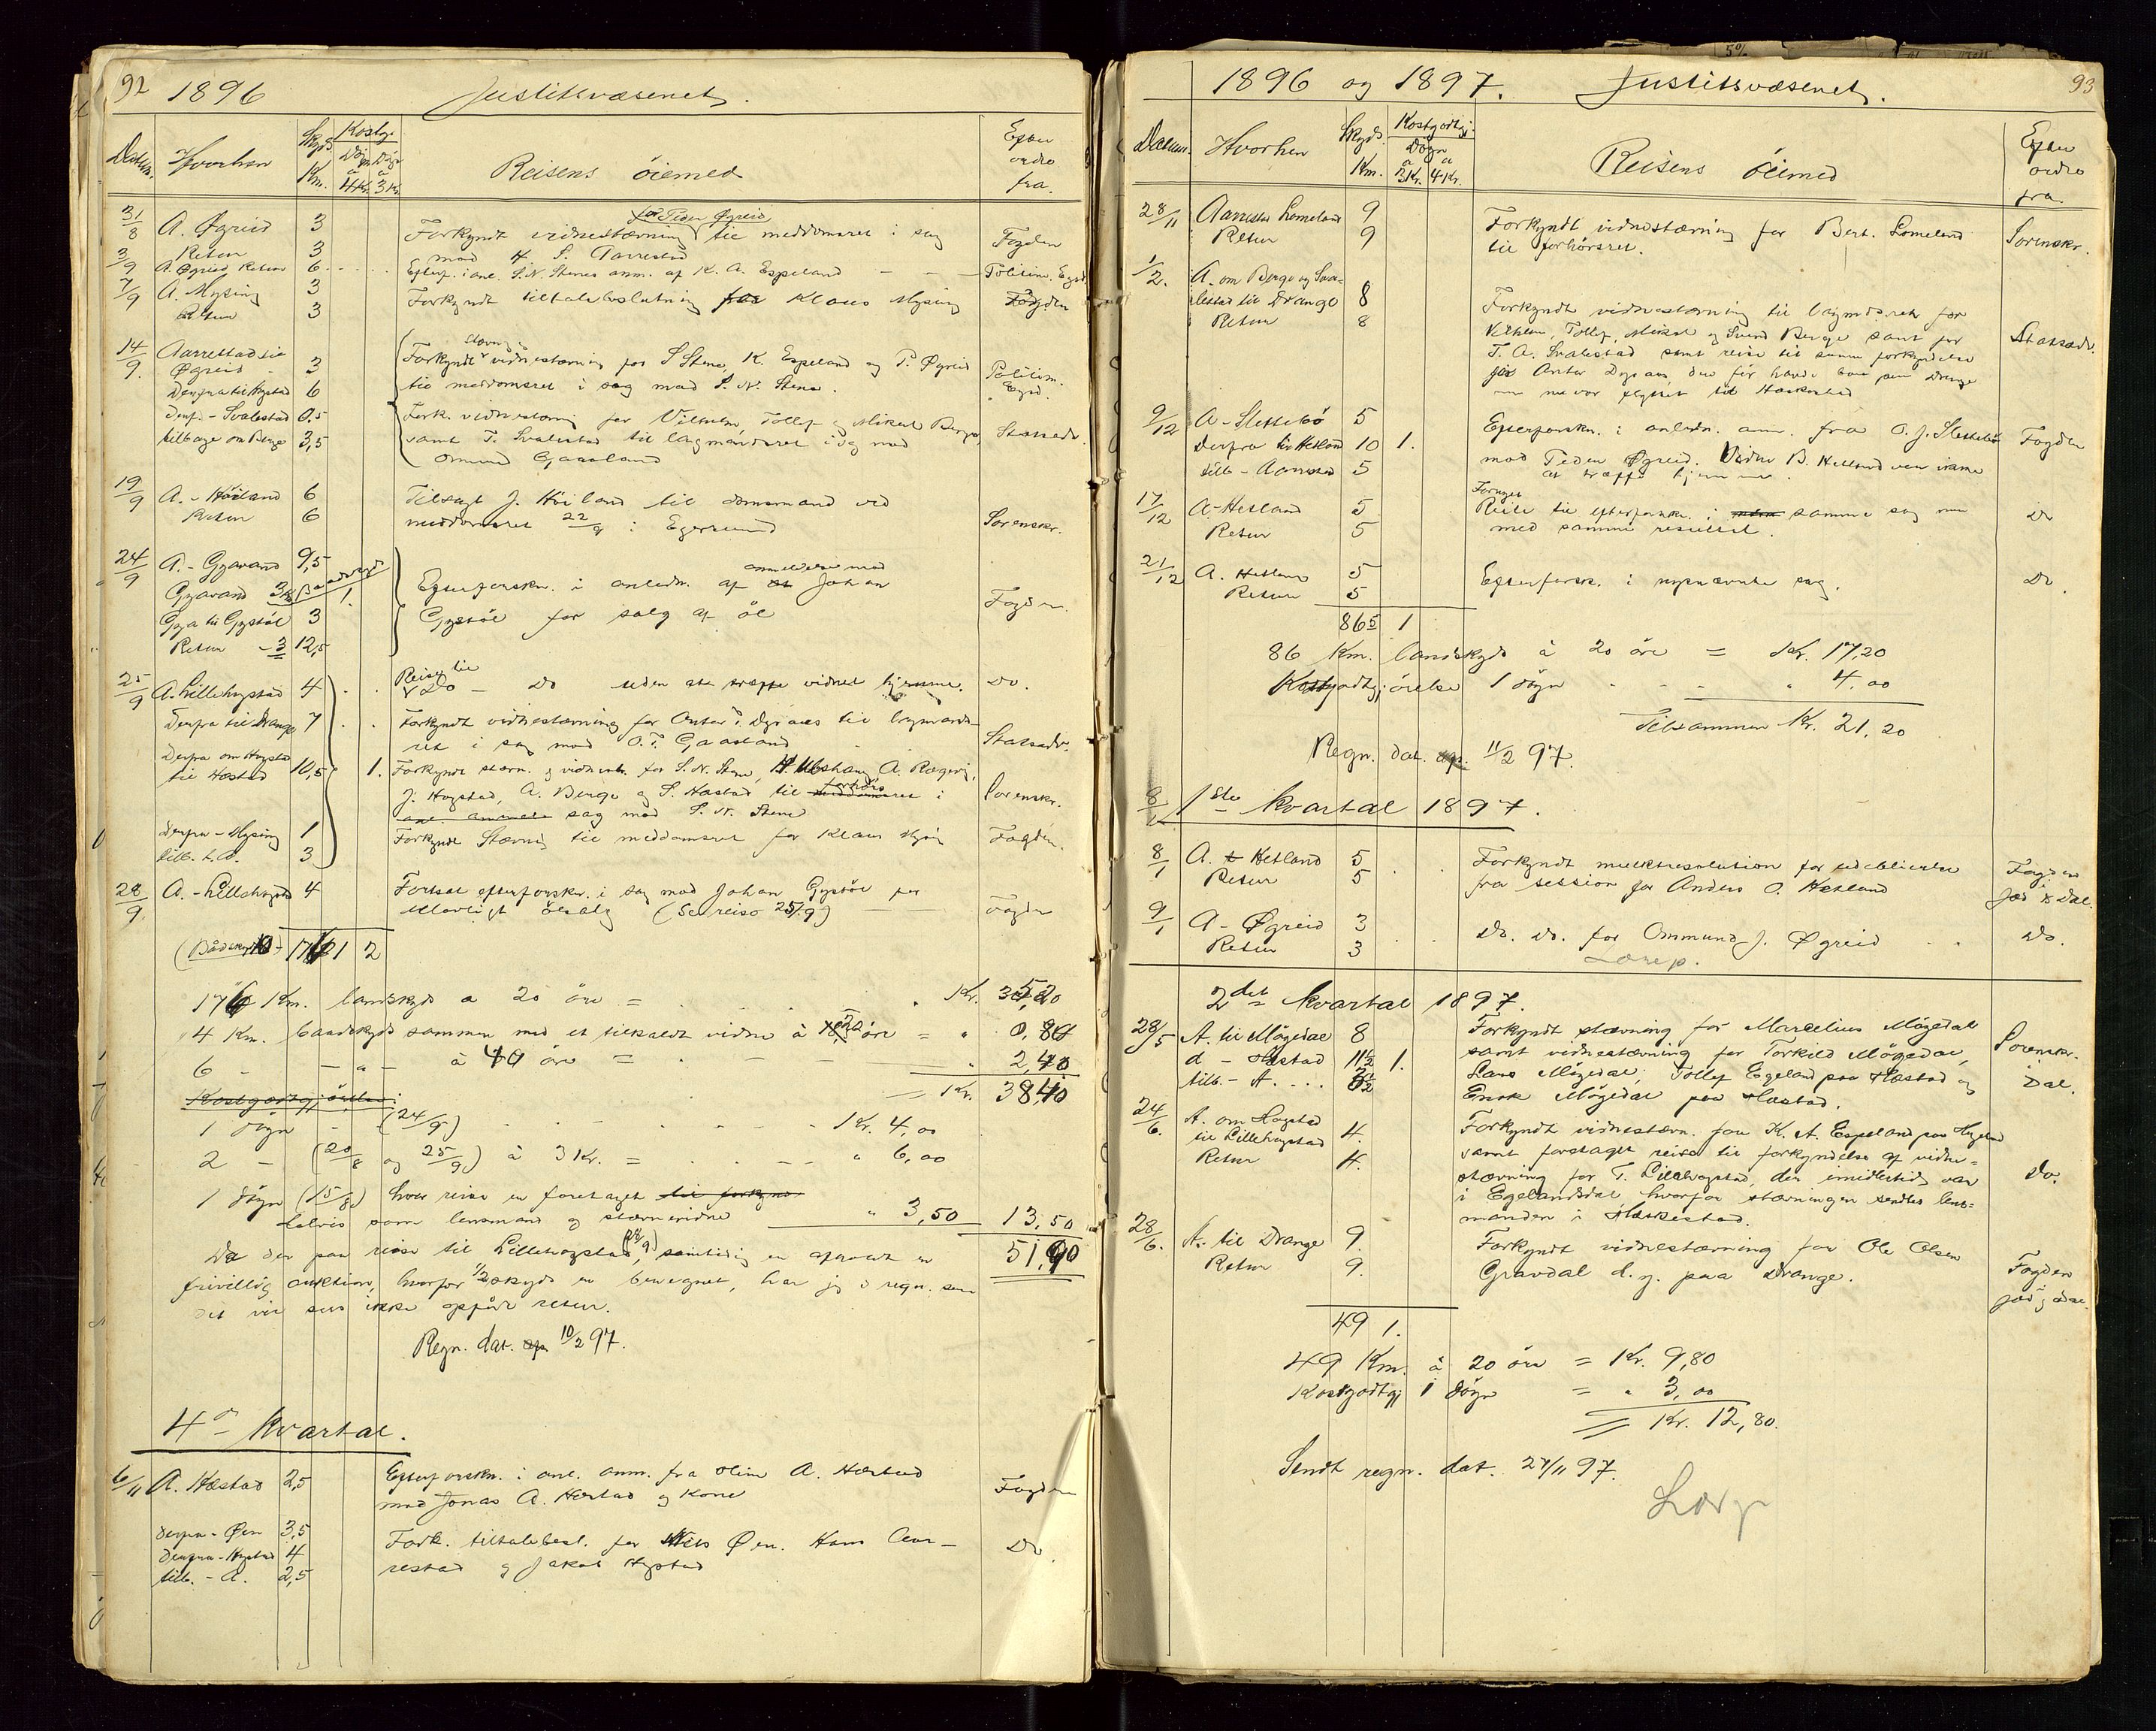 92 1896 Justitsvæsenet.
Datum. Hvorhen Skyds Km. Kostg. Døgn à 4 Kr. Døgn à 3 Kr. Reisens øiemed Efter ordre fra.
31/8 A. Øgreid 3 Forkyndt vidnestævning for Peder Øgreid til meddomsret i sag Fogden
Retur 3 mod H. S. Aarrestad
3/9 A. Øgreid Retur 6 Efterf. i anl. S. N. Stenes anm. af K. A. Espeland — — Politim. Egsd.
7/9 A. Mysing 3 Forkyndt tiltalebeslutning for Klaus Mysing Fogden
Retur 3
14/9. Aarrestad til Forkyndt stævning vidnestævning for S Stene, K. Espeland og P. Øgreid Politim.
Øgreid - 3 til meddomsret i sag mod S. N. Stene. Egsd.
Derfra til Hystad 6
derf. - Svalestad 0,5 Fork. vidnestævning for Vilhelm, Tollef og Mikal Berge, Statsadv.
tilbage om Berge 3,5 samt T. Svalestad til lagmandsret i sag mod
Ommund Gaasland
19/9 A. - Høiland 6 Tilsagt J. Høiland til domsmand ved
Retur 6 meddomsret 22/9 i Egersund Sorenskr.
24/9 A. - Gyavand 9,5 Efterforskn. i anledn. af anmeldelse mod Johan
Gyavand 3 K baadskyds 1. Gystøl for salg af øl Fogden.
Gya til Gystøl 3
Retur - 3 12,5
25/9 A. Lillehogstad 4 Reise til do - do uden at træffe vidnet hjemme. Do.
Derfra til Drange 7 Forkyndt vidnestævning for Antor Dypaas til lagmands-
ret i sag mod O. T. Gaasland Statsadv.
Derfra om Hogstad
til Hæstad 10,5 1. Forkyndt stævn. og vidnest. for S. N. Stene, A. Rægevig,
J. Hogstad, A. Berge og S. Hæstad til forhørs i Sorenskr.
sag mod S. N. Stene
derfra - Mysing 1 Forkyndt Stævning til meddomsret for Klaus Mysing Fogden.
tilb. t. A. 3
28/9 A. - Lillehogstad 4 Fortsat efterforskn. i sag mod Johan Gystøl for
ulovligt ølsalg (Se reise 25/9) Fogden
(Baadskyds 10 - 176 1 2
176 Km. landskyds a 20 øre = Kr. 35,20
4 Km. baadskyds sammen med et tilkaldt vidne à 20 øre = " 0,80
6 - — " — à 40 øre = 2,40
Kostgodtgjørelse: = Kr. 38,40
1 døgn - (24/9) Kr. 4,00
2 - (20/8 og 25/9) à 3 Kr. = " 6,00
1 døgn (15/8) hvor reise er foretaget til forkyn-
delvis som lensmand og stævnevidne " 3,50 13,50
Da der paa reise til Lillehogstad (28/9) samtidig er afholdt en 51,90
frivillig auktion, hvorfor 1/2 skyds er beregnet, har jeg i regn. som
det vil sees ikke opført retur.
Regn. dat. 10/2 97.
4de Kvartal.
6/11 A. Hæstad 2,5 Efterforskn. i anl. anm. fra Oline A. Hæstad
mod Jonas A. Hæstad og Kone Fogden
derfra - Øen 3,5 Fork. tiltalebesl. for Nils Øen, Hans Aar- Do.
derfra - Hystad 4 restad og Jakob Hystad
tilb. - A. 2,5
1896 og 1897. Justitsvæsenet. 93
Datum. Hvorhen Skyds. Km. Kostgodtgj. Døgn à 3 Kr. à 4 Kr. Reisens øiemed Efter ordre fra
28/11 Aarrestad Lomeland 9 Forkyndt vidnestævning for Bert. Lomeland Sorenskr.
Retur 9 til forhørsret.
1/2. A. om Berge og Sva-
lestad til Drange 8 Forkyndt vidnestævning til lagmdsret for
Retur 8 Vilhelm, Tollef, Mikal og Svend Berge samt for Statsadv.
T. A. Svalestad samt reise til samme forkyndelse
for Antor Dypaas, der før havde boet paa Drange
men nu var flyttet til Hæskestad
9/12 A - Slettebø 5 Efterforskn. i anledn. anm. fra O. J. Slettebø Fogden
Derfra til Hetland 10 1. mod Peder Øgreid. Vidne B. Hetland var ikke
tilb - Aarrestad 5 at træffe hjemme.
17/12 A - Hetland 5 Forgjæves Reise til efterforskn. i samme sag Do
Retur 5 med samme resultat.
21/12 A. Hetland 5 Efterforsk. i nysnævnte sag. Do.
Retur 5
86 5 1
86 Km. landskyds à 20 øre = Kr. 17,20
Kostgodtgjørelse 1 døgn " 4,00
Tilsammen Kr. 21,20
Regn. dat. 11/2 97.
1ste kvartal 1897.
8/1 A. t Hetland 5 Forkyndt mulktresolution for udeblivelse Fogden
Retur 5 fra session for Anders O. Hetland Jæd & Dal.
9/1 A - Øgreid 3 Do. Do. for Ommund J. Øgreid Do.
Retur 3
2det kvartal 1897.
28/5 A. til Møgedal 8 Forkyndt stævning for Marcelius Møgedal Sorenskr.
d - Hæstad 11 1/2 1. samt vidnestævning for Torkild Møgedal, Dal.
tilb. - A. . . . 2 1/2 Lars Møgedal, Tollef Egeland paa Hæstad og
Enok Møgedal paa Hæstad.
24/6. A. om Hogstad Forkyndt vidnestævn. for K. A. Espeland paa Hogstad
til Lillehogstad 4. samt foretaget reise til forkyndelse af vidne-
Retur 4. stævning for T. Lillehogstad, der imidlertid var Do.
i Egelandsdal hvorfor stævningen sendtes lens-
manden i Hæskestad.
28/6. A. til Drange 9. Forkyndt vidnestævning for Ole Olsen
Retur 9. Gravdal d. y. paa Drange. Fogden
Jæd & Dal.
49 1.
49 Km. à 20 øre = Kr. 9,80
Kostgodtgj 1 døgn = " 3,00
= Kr. 12,80.
Sendt regn. dat. 27/11 97.